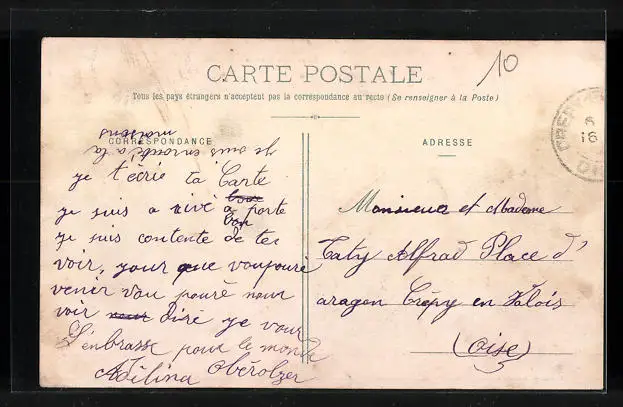 10
CARTE POSTALE
Tous les pays étrangers n'acceptent pas la correspondance au recto (Se renseigner à la Poste)
CORRESPONDANCE
ADRESSE
je suis enroulé a la
maison
je t'écrie ta Carte
je suis a rivé a porte
bon
je suis contente de tes
voir, your que voupouré
venir vou pouré nour
voir diré je vour
S'enbrasse pour le monde
Adilina Obérolzer
Monsieur et Madame
Taty Alfrad Place d'
aragon Crépy en Valois
(Oise)
CREPY
6
16